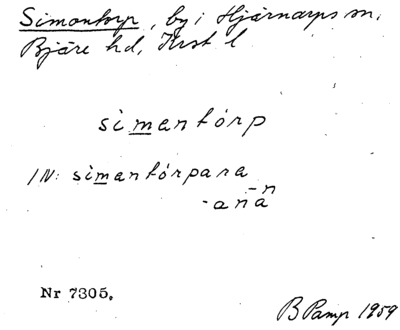 Simontorp, by i Hjärnarps sn,
Bjäre hd, Krst l
simantórp
IN: simantórpara
-anä-n
Nr 7305.
B Pamp 1959